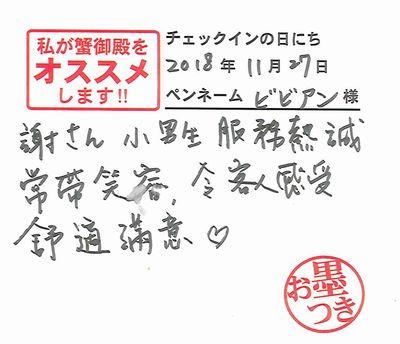 私が蟹御殿を
オススメ
します!!
チェックインの日にち
2018年 11月27日
ペンネーム ビビアン 様
謝さん 小男生 服務熱誠
常帶笑容, 令客人感受
舒適滿意♡
お墨つき